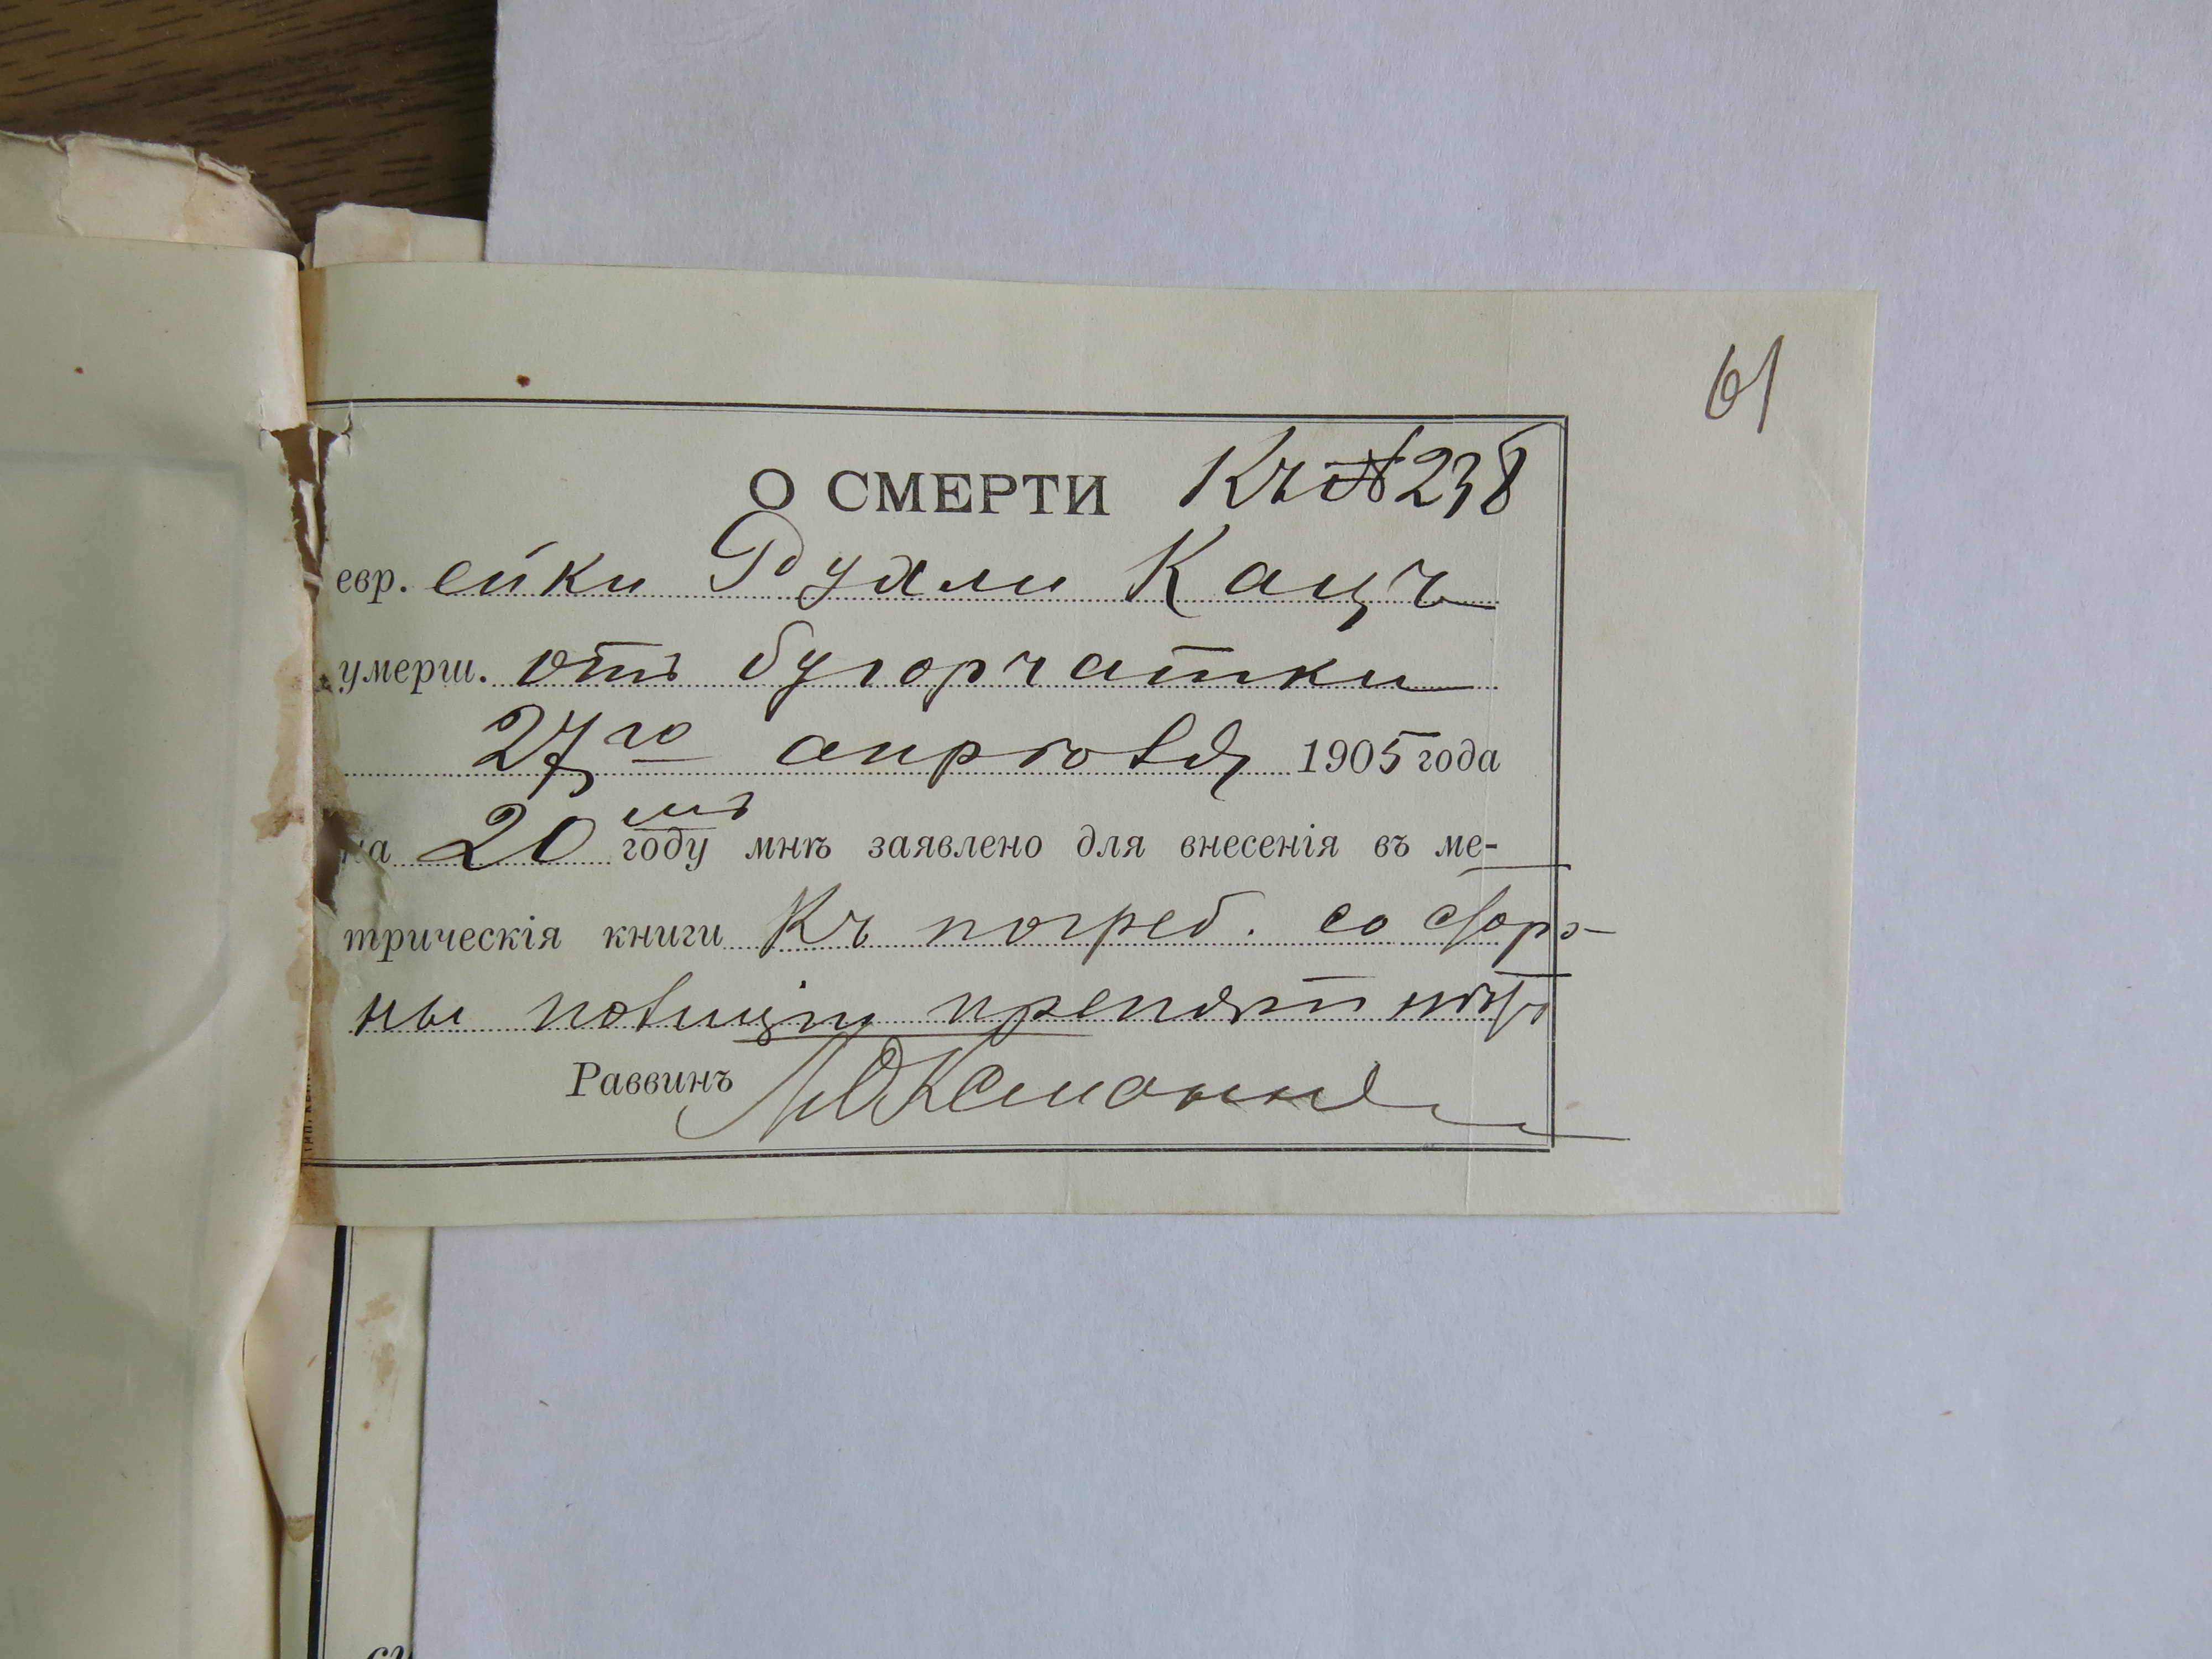 61
О СМЕРТИ Къ № 238
евр. ейки Рухли Кацъ
умерш. отъ бугорчатки
27го апрѣля 1905 года
на 20 мъ году мнѣ заявлено для внесенія въ ме-
трическія книги Къ погреб. со сторо-
ны полиціи препятст нѣтъ
Раввинъ